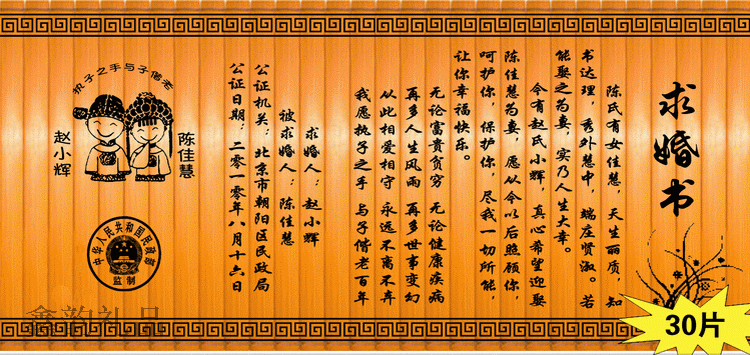 求婚书
陈氏有女佳慧，天生丽质，知
书达理，秀外慧中，端庄贤淑。若
能娶之为妻，实乃人生大幸。
今有赵氏小辉，真心希望迎娶
陈佳慧为妻，愿从今以后照顾你，
呵护你，保护你，尽我一切所能，
让你幸福快乐。
无论富贵贫穷 无论健康疾病
再多人生风雨 再多世事变幻
从此相爱相守 永远不离不弃
我愿执子之手 与子偕老百年
求婚人：赵小辉
被求婚人：陈佳慧
公证机关：北京市朝阳区民政局
公证日期：二零一零年八月十六日
执子之手与子偕老
陈佳慧
赵小辉
中华人民共和国民政部
监制
鑫韵礼品
30片